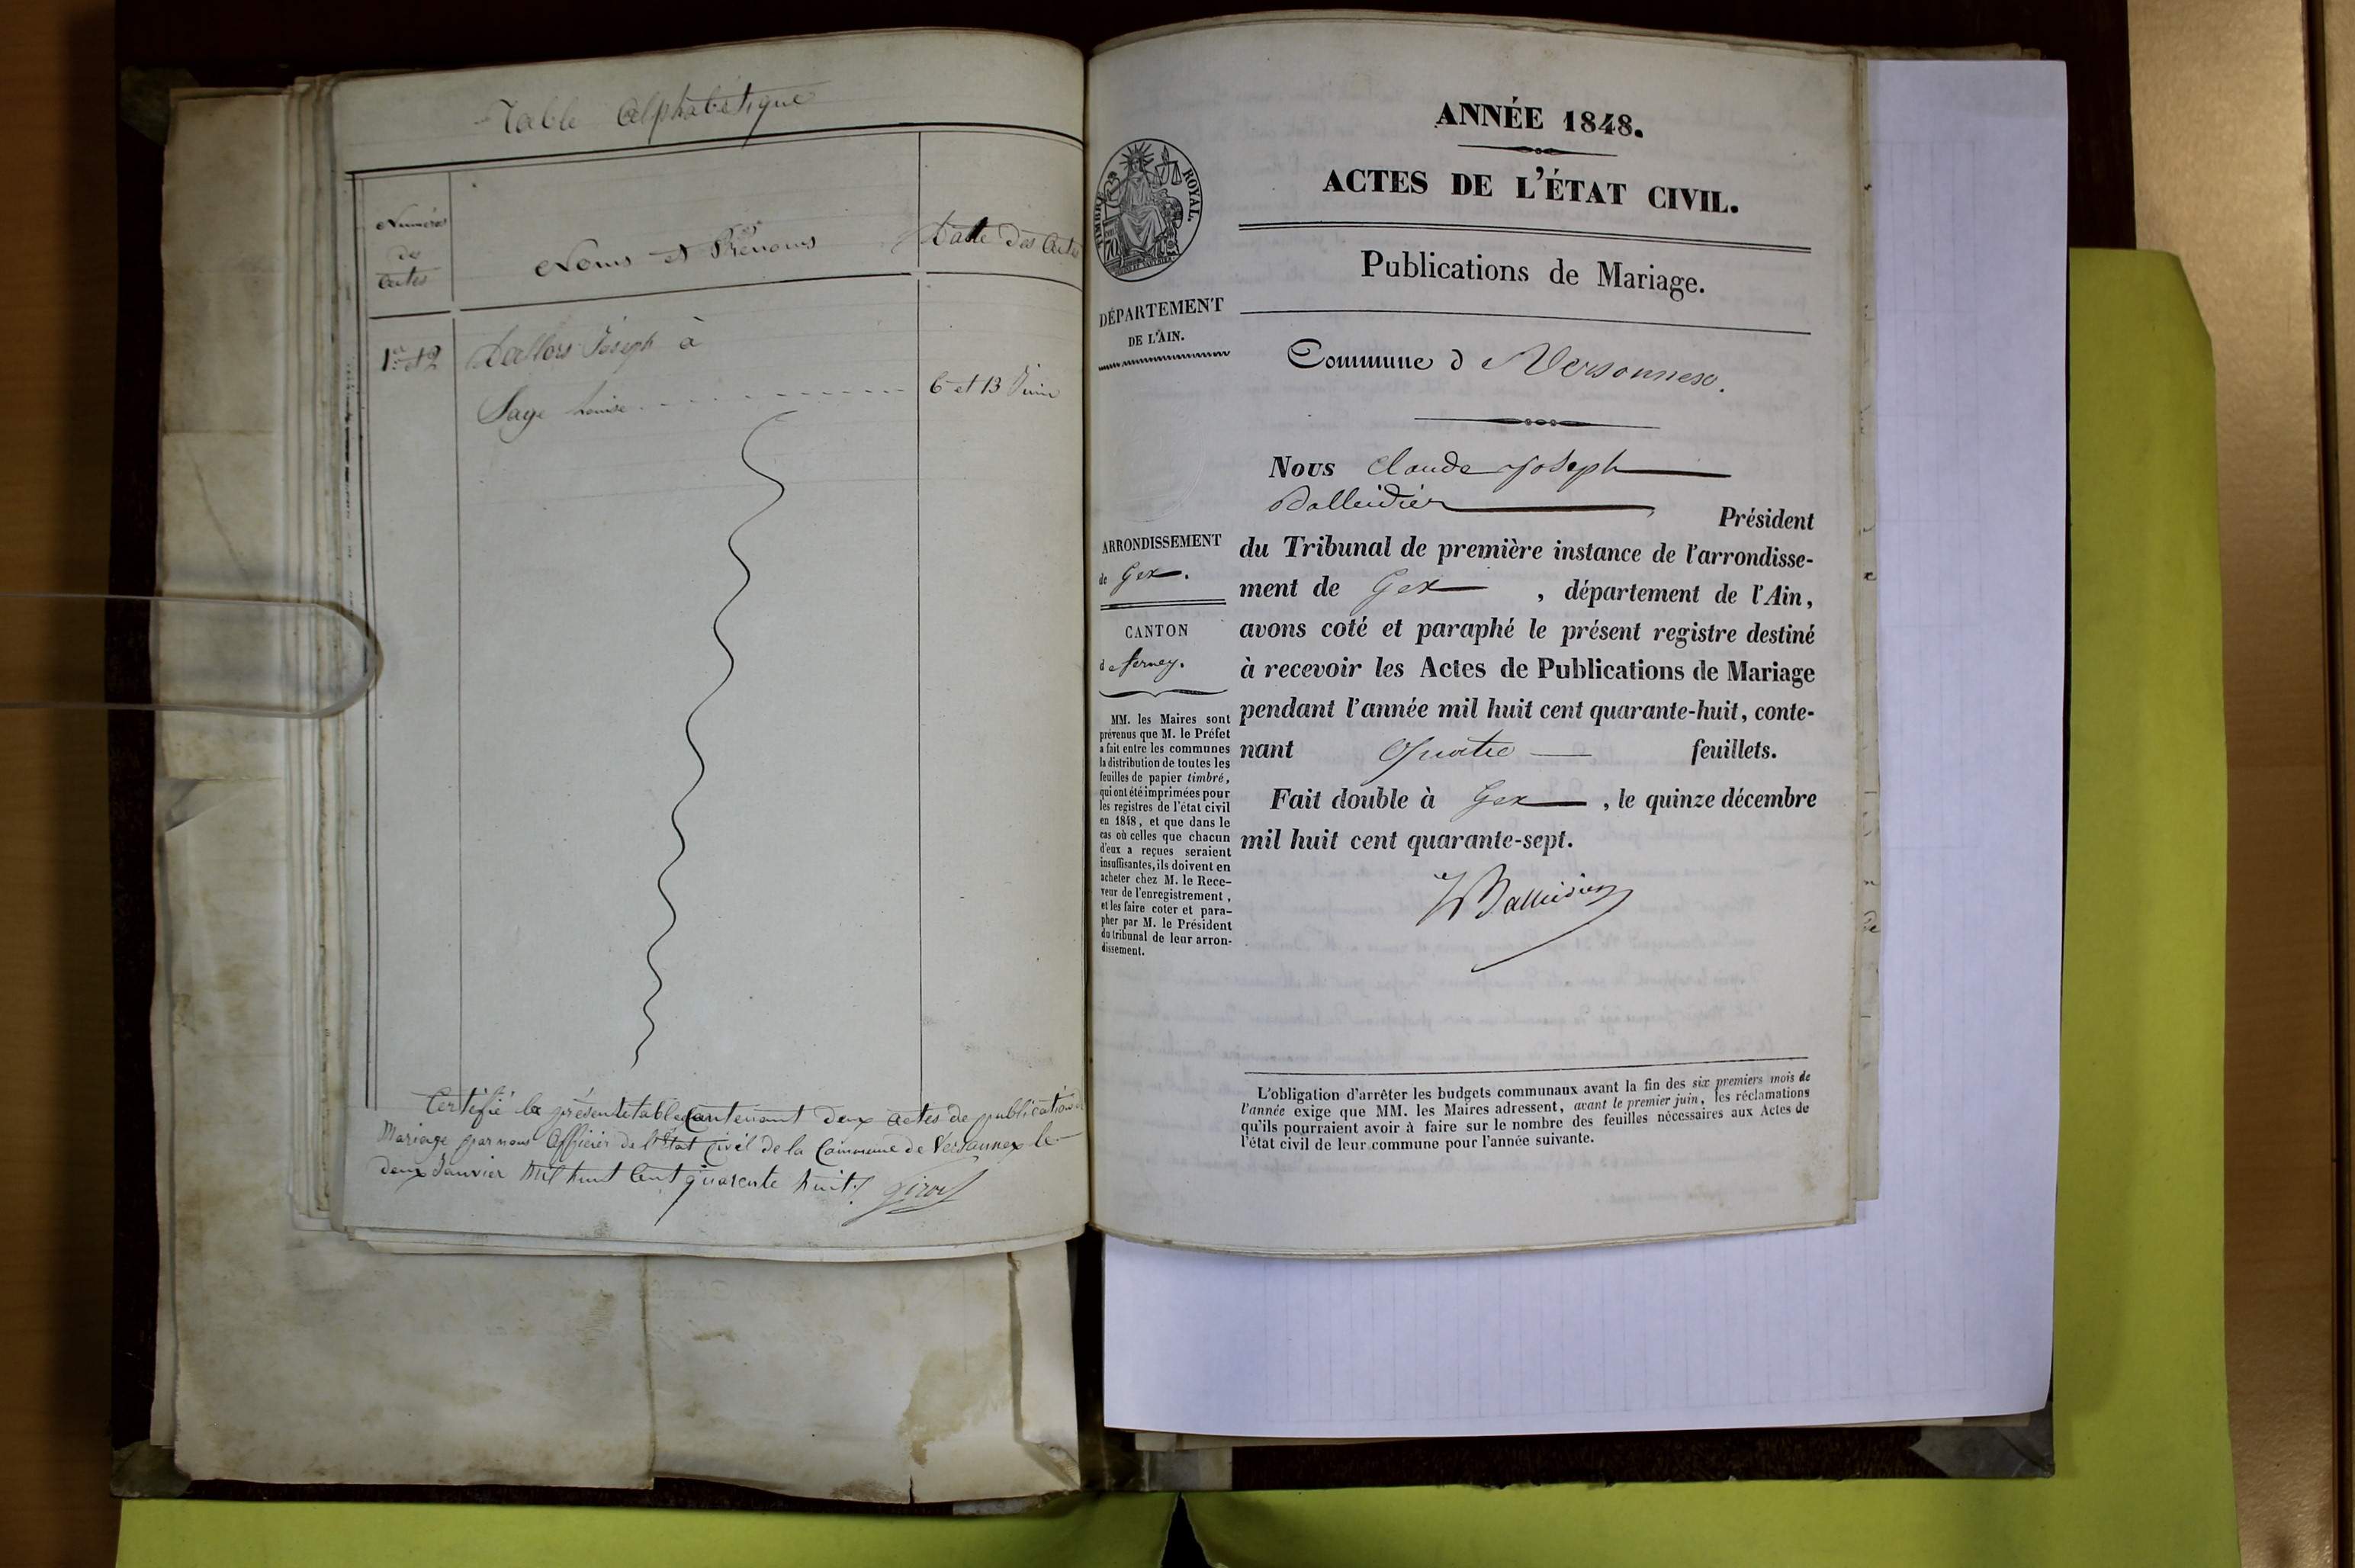 Table Alphabétique
Numéros
des
Actes
Noms et Prénoms
Date des Actes
1er et 2
Joseph à
Sage Louise
6 et 13 Juin
Certifié la présente table Contenant deux actes de publication de
Mariage par nous Officier de l'Etat Civil de la Commune de Versonnex le
deux Janvier Mil huit Cent quarante huit
ANNÉE 1848.
ACTES DE L'ÉTAT CIVIL.
Publications de Mariage.
TIMBRE ROYAL
70
DÉPARTEMENT
DE L'AIN.
Commune d Versonnex.
ARRONDISSEMENT
de Gex.
CANTON
de ferney.
MM. les Maires sont
prévenus que M. le Préfet
a fait entre les communes
la distribution de toutes les
feuilles de papier timbré,
qui ont été imprimées pour
les registres de l'état civil
en 1848, et que dans le
cas où celles que chacun
d'eux a reçues seraient
insuffisantes, ils doivent en
acheter chez M. le Rece-
veur de l'enregistrement,
et les faire coter et para-
pher par M. le Président
du tribunal de leur arron-
dissement.
Nous Claude Joseph
Balleidier Président
du Tribunal de première instance de l'arrondisse-
ment de Gex , département de l'Ain,
avons coté et paraphé le présent registre destiné
à recevoir les Actes de Publications de Mariage
pendant l'année mil huit cent quarante-huit, conte-
nant Quatre feuillets.
Fait double à Gex , le quinze décembre
mil huit cent quarante-sept.
Balleidier
L'obligation d'arrêter les budgets communaux avant la fin des six premiers mois de
l'année exige que MM. les Maires adressent, avant le premier juin, les réclamations
qu'ils pourraient avoir à faire sur le nombre des feuilles nécessaires aux Actes de
l'état civil de leur commune pour l'année suivante.